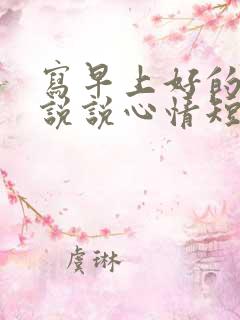 寫早上好的
說說心情短
虞琳